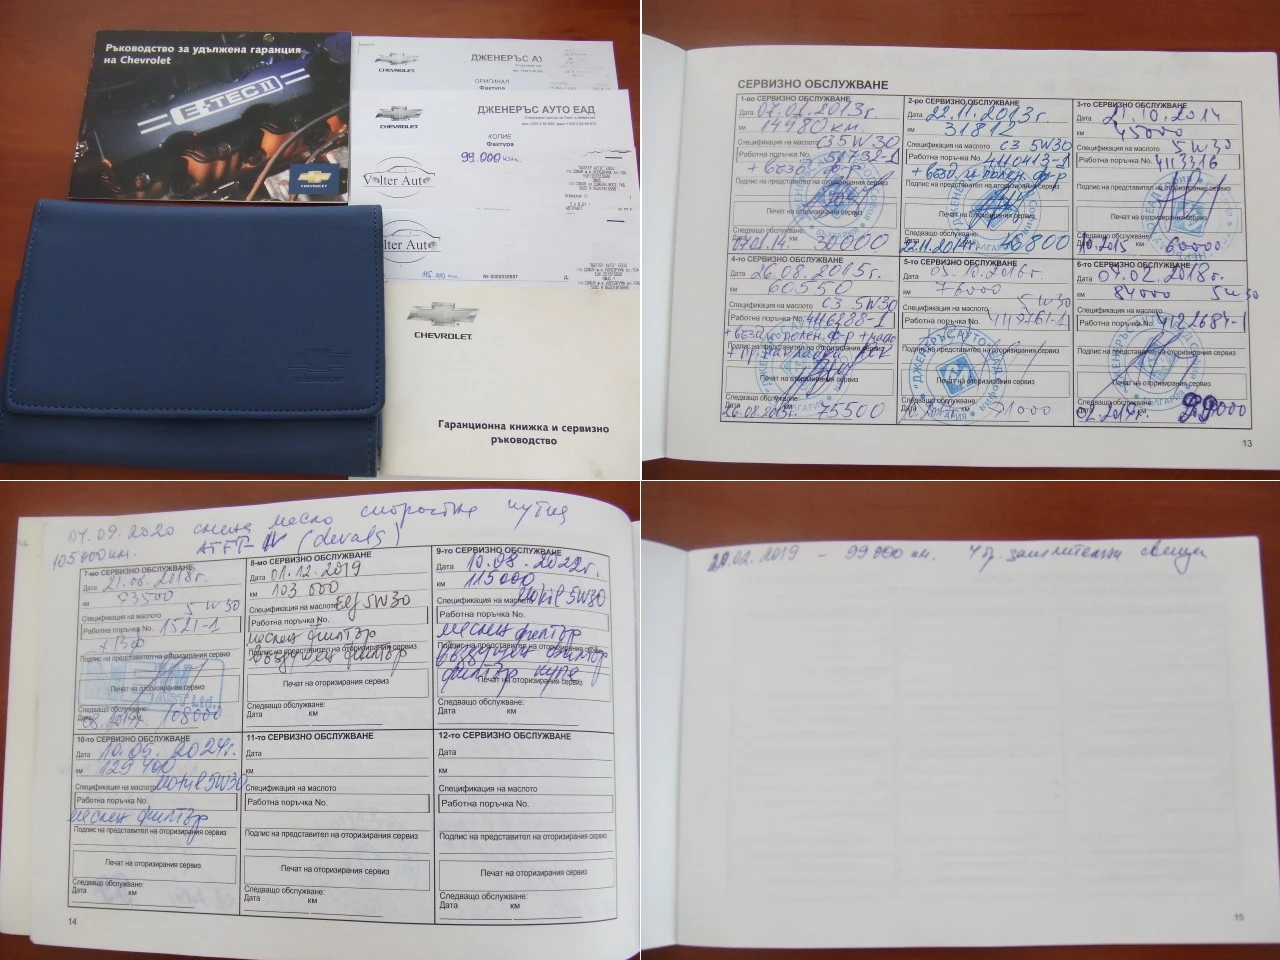 Ръководство за удължена гаранция
на Chevrolet
E-TEC II
CHEVROLET
CHEVROLET
ДЖЕНЕРЪС АУ
ОРИГИНАЛ
Фактура
CHEVROLET
ДЖЕНЕРЪС АУТО ЕАД
КОПИЕ
Фактура
99.000 км.
Volter Auto
Volter Auto
CHEVROLET
CHEVROLET
Гаранционна книжка и сервизно
ръководство
СЕРВИЗНО ОБСЛУЖВАНЕ
1-во СЕРВИЗНО ОБСЛУЖВАНЕ
Дата 07.01.2013г
км 14980 км
Спецификация на маслото C3 5W30
Работна поръчка No.
+ възд. ф-р
Подпис на представител на оторизирания сервиз
Печат на оторизирания сервиз
Следващо обслужване:
Дата км
30000
2-ро СЕРВИЗНО ОБСЛУЖВАНЕ
Дата 22.11.2013г
км 31812
Спецификация на маслото C3 5W30
Работна поръчка No. 4110413-1
+ възд. и полен. ф-р
Подпис на представител на оторизирания сервиз
Печат на оторизирания сервиз
Следващо обслужване:
Дата 22.11.2014 км 46800
3-то СЕРВИЗНО ОБСЛУЖВАНЕ
Дата 21.10.2014
км 45000
Спецификация на маслото 5W30
Работна поръчка No. 4113316
Подпис на представител на оторизирания сервиз
Печат на оторизирания сервиз
Следващо обслужване:
Дата 10.2015 км 60000
4-то СЕРВИЗНО ОБСЛУЖВАНЕ
Дата 26.08.2015г.
км 60550
Спецификация на маслото C3 5W30
Работна поръчка No. 4116288-1
+ възд. и полен. ф-р
Подпис на представител на оторизирания сервиз
+ пр. накладки
Печат на оторизирания сервиз
Следващо обслужване:
Дата км 75500
5-то СЕРВИЗНО ОБСЛУЖВАНЕ
Дата 05.10.2016г.
км 76000
Спецификация на маслото 5W30
Работна поръчка No.
Подпис на представител на оторизирания сервиз
Печат на оторизирания сервиз
Следващо обслужване:
Дата км
6-то СЕРВИЗНО ОБСЛУЖВАНЕ
Дата 07.02.2018г.
км 84000 5W30
Спецификация на маслото
Работна поръчка No. 4122684-1
Подпис на представител на оторизирания сервиз
Печат на оторизирания сервиз
Следващо обслужване:
Дата 02.2019г. км 99000
13
04.09.2020 смяна масло скоростна кутия
105000км. ATFT-IV (devals)
7-мо СЕРВИЗНО ОБСЛУЖВАНЕ
Дата 21.08.2018г.
км 93500
Спецификация на маслото 5W30
Работна поръчка No. 1521-1
Подпис на представител на оторизирания сервиз
Печат на оторизирания сервиз
Следващо обслужване:
Дата 08.2019г. км 108000
8-мо СЕРВИЗНО ОБСЛУЖВАНЕ
Дата 01.12.2019
км 103 000
Спецификация на маслото Elf 5W30
Работна поръчка No.
маслен филтър
Подпис на представител на оторизирания сервиз
въздушен филтър
Печат на оторизирания сервиз
Следващо обслужване:
Дата км
9-то СЕРВИЗНО ОБСЛУЖВАНЕ
Дата 10.08.2022г.
км 115000
Спецификация на маслото Mobil 5W30
Работна поръчка No.
маслен филтър
Подпис на представител на оторизирания сервиз
въздушен филтър
филтър купе
Печат на оторизирания сервиз
Следващо обслужване:
Дата км
10-то СЕРВИЗНО ОБСЛУЖВАНЕ
Дата 10.05.2024г.
км 129 400
Спецификация на маслото Mobil 5W30
Работна поръчка No.
маслен филтър
Подпис на представител на оторизирания сервиз
Печат на оторизирания сервиз
Следващо обслужване:
Дата км
11-то СЕРВИЗНО ОБСЛУЖВАНЕ
Дата
км
Спецификация на маслото
Работна поръчка No.
Подпис на представител на оторизирания сервиз
Печат на оторизирания сервиз
Следващо обслужване:
Дата км
12-то СЕРВИЗНО ОБСЛУЖВАНЕ
Дата
км
Спецификация на маслото
Работна поръчка No.
Подпис на представител на оторизирания сервиз
Печат на оторизирания сервиз
Следващо обслужване:
Дата км
14
20.02.2019 - 99 000 км. 4 бр. запалителни свещи
15